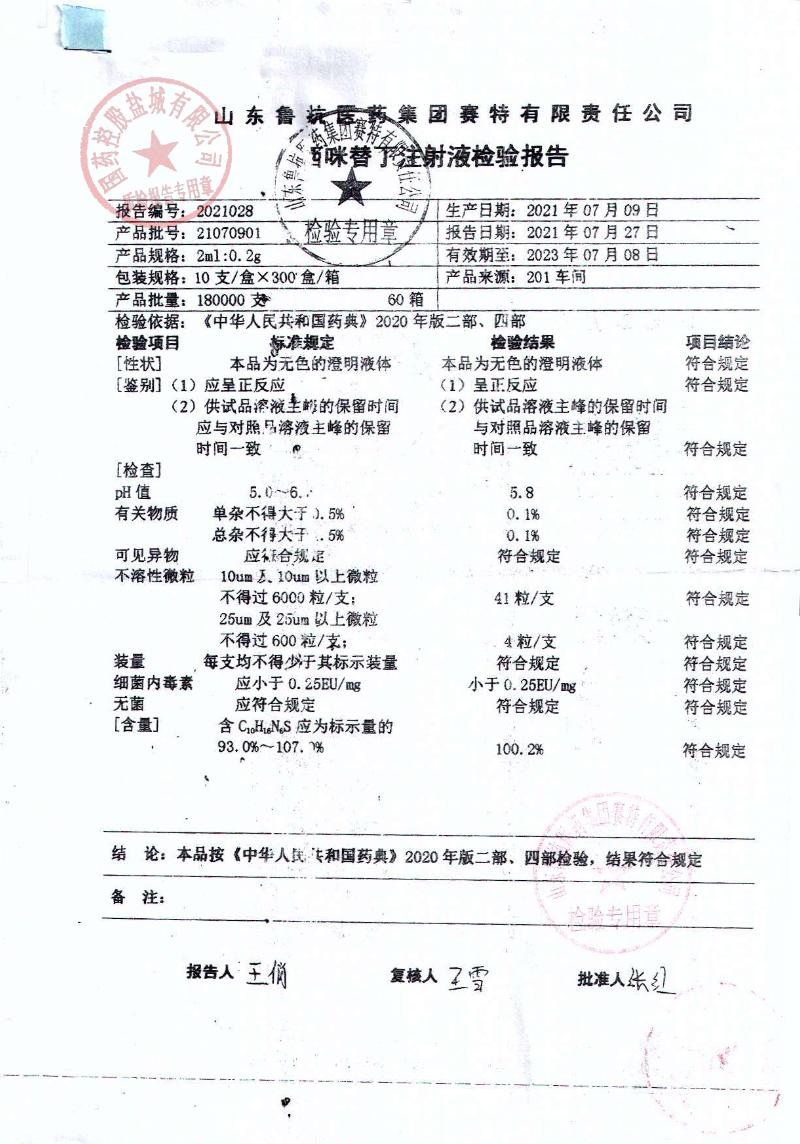 山东鲁抗医药集团赛特有限责任公司
西咪替丁注射液检验报告
国药控股盐城有限公司
质检报告专用章
检验专用章
报告编号: 2021028 生产日期: 2021 年 07 月 09 日
产品批号: 21070901 报告日期: 2021 年 07 月 27 日
产品规格: 2ml:0.2g 有效期至: 2023 年 07 月 08 日
包装规格: 10 支/盒×300 盒/箱 产品来源: 201 车间
产品批量: 180000 支 60 箱
检验依据: 《中华人民共和国药典》2020 年版二部、四部
检验项目 标准规定 检验结果 项目结论
[性状] 本品为无色的澄明液体 本品为无色的澄明液体 符合规定
[鉴别] (1) 应呈正反应 (1) 呈正反应 符合规定
(2) 供试品溶液主峰的保留时间 (2) 供试品溶液主峰的保留时间
应与对照品溶液主峰的保留 与对照品溶液主峰的保留
时间一致 时间一致 符合规定
[检查]
pH 值 5.0～6. 5.8 符合规定
有关物质 单杂不得大于 .5% 0.1% 符合规定
总杂不得大于 .5% 0.1% 符合规定
可见异物 应符合规定 符合规定 符合规定
不溶性微粒 10um 及 10um 以上微粒
不得过 6000 粒/支; 41 粒/支 符合规定
25um 及 25um 以上微粒
不得过 600 粒/支; 4 粒/支 符合规定
装量 每支均不得少于其标示装量 符合规定 符合规定
细菌内毒素 应小于 0.25EU/mg 小于 0.25EU/mg 符合规定
无菌 应符合规定 符合规定 符合规定
[含量] 含 C₁₀H₁₆N₆S 应为标示量的
93.0%～107. % 100.2% 符合规定
结 论: 本品按《中华人民共和国药典》2020 年版二部、四部检验, 结果符合规定
检验专用章
备 注:
报告人 王俏 复核人 王雪 批准人 张红